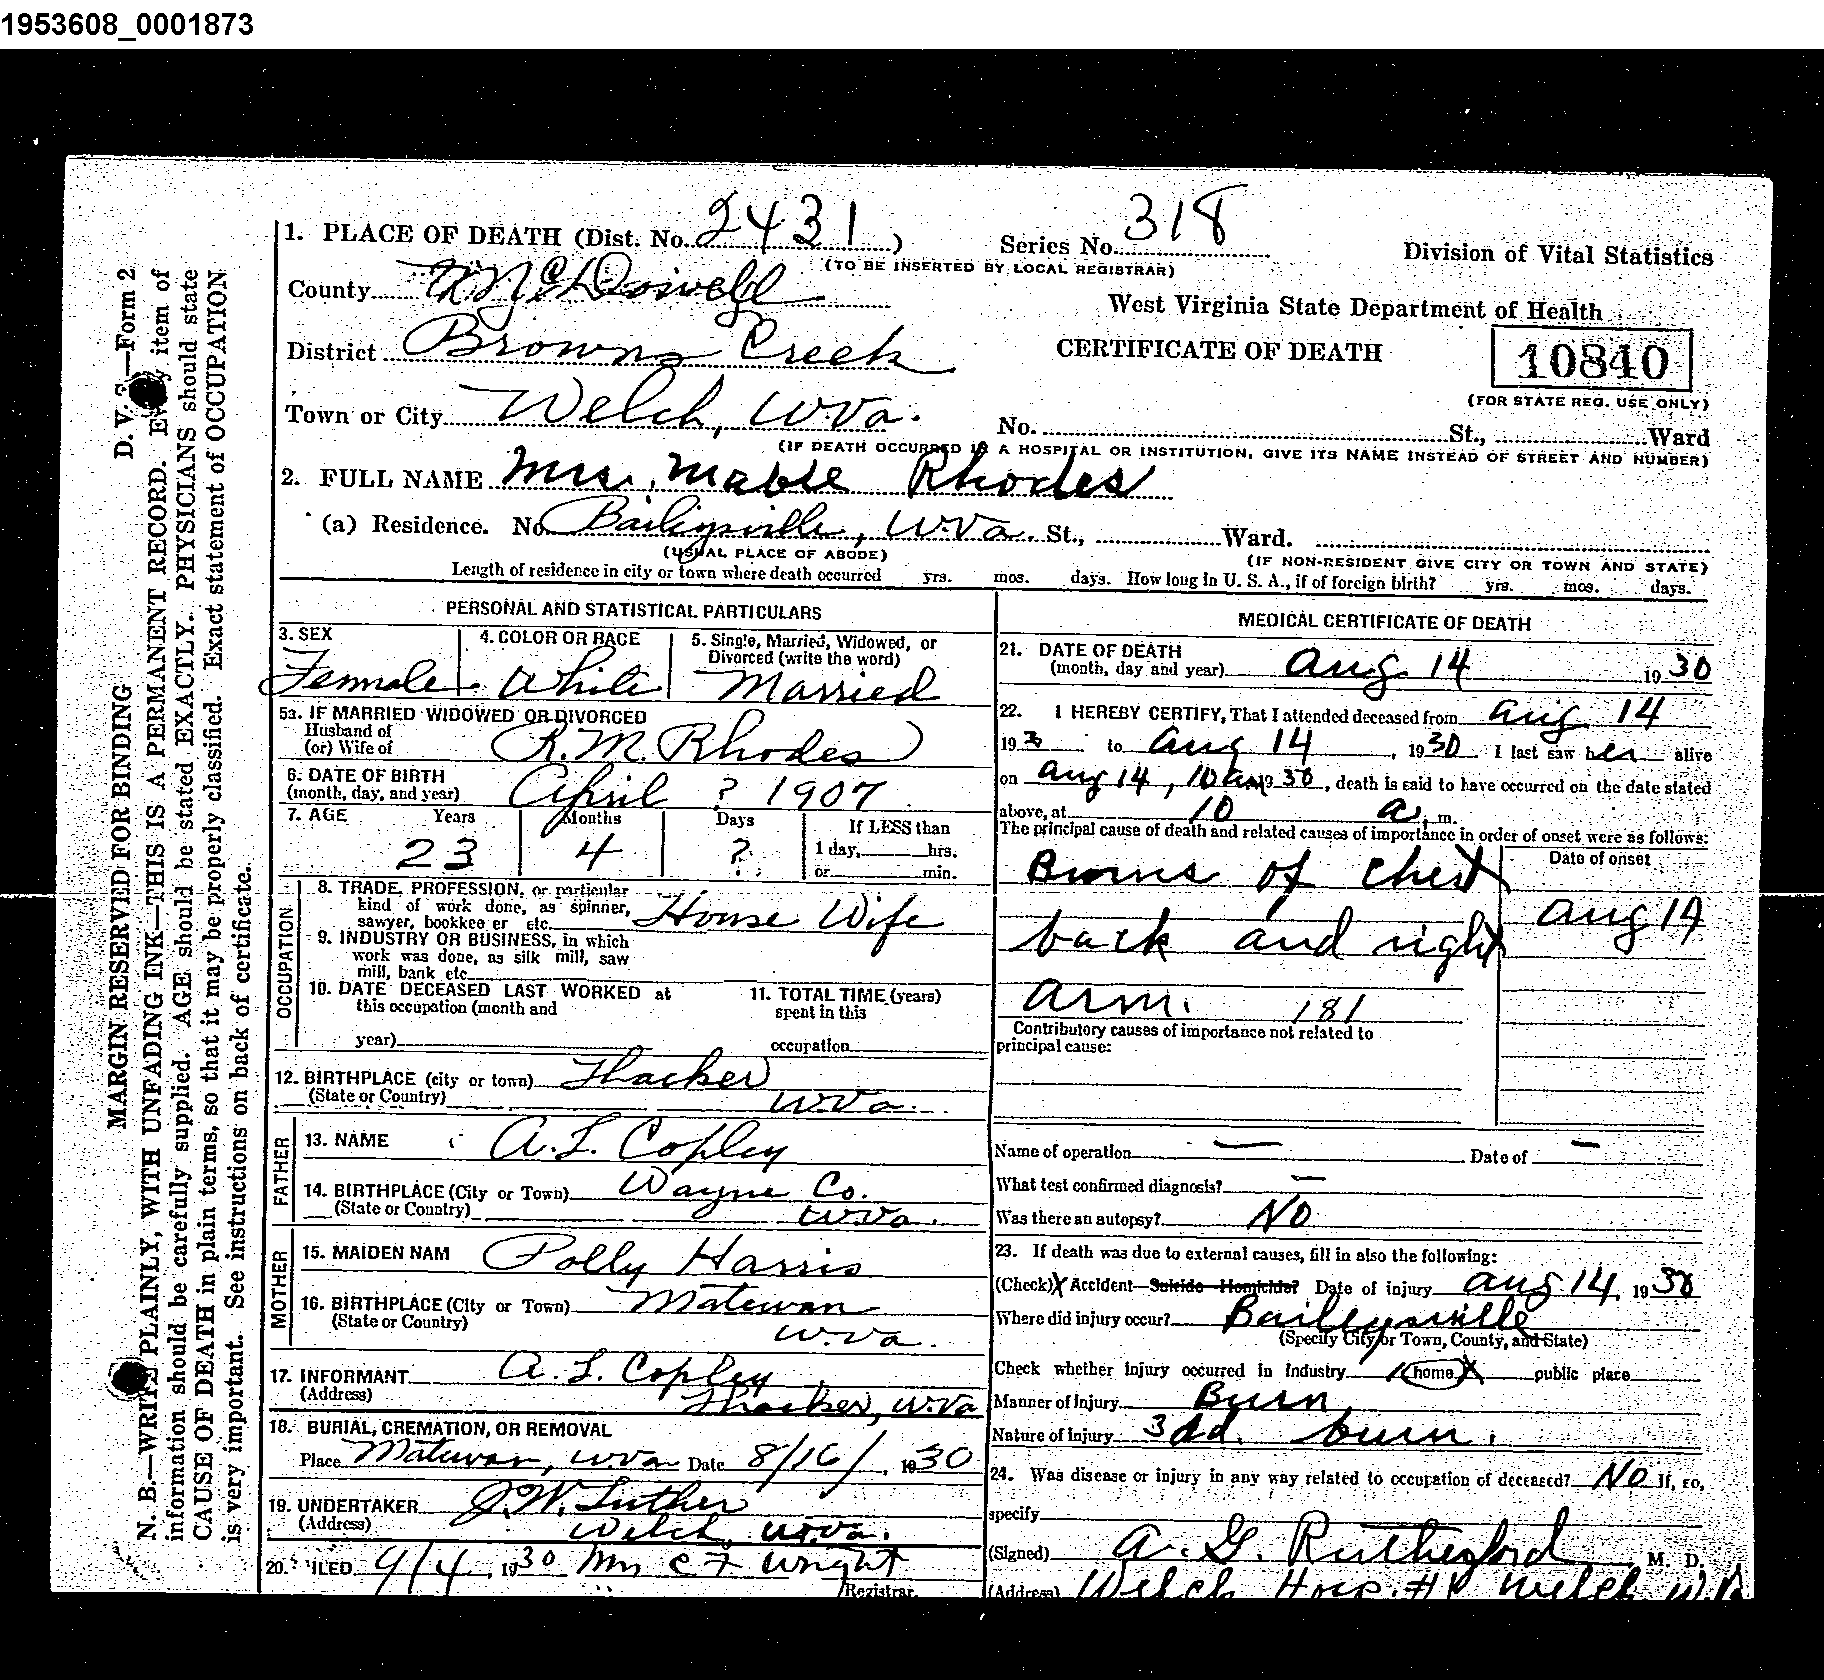 1953608_0001873
1. PLACE OF DEATH (Dist. No. 2431)
Series No. 318
(TO BE INSERTED BY LOCAL REGISTRAR)
Division of Vital Statistics
County McDowell
West Virginia State Department of Health
District Browns Creek
CERTIFICATE OF DEATH
10840
(FOR STATE REG. USE ONLY)
Town or City Welch, W.Va.
No. St., Ward
(IF DEATH OCCURRED IN A HOSPITAL OR INSTITUTION, GIVE ITS NAME INSTEAD OF STREET AND NUMBER)
2. FULL NAME Mrs. Mable Rhodes
(a) Residence. No Baileysville, W.Va. St., Ward.
(USUAL PLACE OF ABODE) (IF NON-RESIDENT GIVE CITY OR TOWN AND STATE)
Length of residence in city or town where death occurred yrs. mos. days. How long in U. S. A., if of foreign birth? yrs. mos. days.
PERSONAL AND STATISTICAL PARTICULARS
3. SEX
Female
4. COLOR OR RACE
White
5. Single, Married, Widowed, or
Divorced (write the word)
Married
5a. IF MARRIED WIDOWED OR DIVORCED
Husband of
(or) Wife of R.M. Rhodes
6. DATE OF BIRTH
(month, day, and year) April ? 1907
7. AGE Years Months Days If LESS than
23 4 ? 1 day, hrs.
or min.
OCCUPATION
8. TRADE, PROFESSION, or particular
kind of work done, as spinner,
sawyer, bookkee er etc. House Wife
9. INDUSTRY OR BUSINESS, in which
work was done, as silk mill, saw
mill, bank etc
10. DATE DECEASED LAST WORKED at
this occupation (month and
year)
11. TOTAL TIME (years)
spent in this
occupation
12. BIRTHPLACE (city or town) Thacker
(State or Country) W.Va.
FATHER
13. NAME A.L. Copley
14. BIRTHPLACE (City or Town) Wayne Co.
(State or Country) W.Va.
MOTHER
15. MAIDEN NAM Polly Harris
16. BIRTHPLACE (City or Town) Matewan
(State or Country) W.Va.
17. INFORMANT A.L. Copley
(Address) Thacker, W.Va
18. BURIAL, CREMATION, OR REMOVAL
Place Matewan, W.Va Date 8/16/ 1930
19. UNDERTAKER J.W. Luther
(Address) Welch W.Va.
20. FILED 9/4, 1930 Mrs C F Wright
Registrar.
MEDICAL CERTIFICATE OF DEATH
21. DATE OF DEATH
(month, day and year) Aug 14 1930
22. I HEREBY CERTIFY, That I attended deceased from Aug 14
193 to Aug 14, 1930. I last saw her alive
on Aug 14, 10 am 30, death is said to have occurred on the date stated
above, at 10 a. m.
The principal cause of death and related causes of importance in order of onset were as follows:
Date of onset
Burns of chest
back and right Aug 14
arm. 181
Contributory causes of importance not related to
principal cause:
Name of operation — Date of —
What test confirmed diagnosis? —
Was there an autopsy? NO
23. If death was due to external causes, fill in also the following:
(Check) X Accident Suicide Homicide? Date of injury Aug 14, 1930
Where did injury occur? Baileysville
(Specify City or Town, County, and State)
Check whether injury occurred in industry home X public place
Manner of injury Burn
Nature of injury 3d d. burn.
24. Was disease or injury in any way related to occupation of deceased? NO If, so,
specify
(Signed) A. G. Rutherford M. D.
(Address) Welch Hosp. #1 Welch W.Va
MARGIN RESERVED FOR BINDING
D. V. S.—Form 2
N. B.—WRITE PLAINLY, WITH UNFADING INK—THIS IS A PERMANENT RECORD. Every item of
information should be carefully supplied. AGE should be stated EXACTLY. PHYSICIANS should state
CAUSE OF DEATH in plain terms, so that it may be properly classified. Exact statement of OCCUPATION
is very important. See instructions on back of certificate.